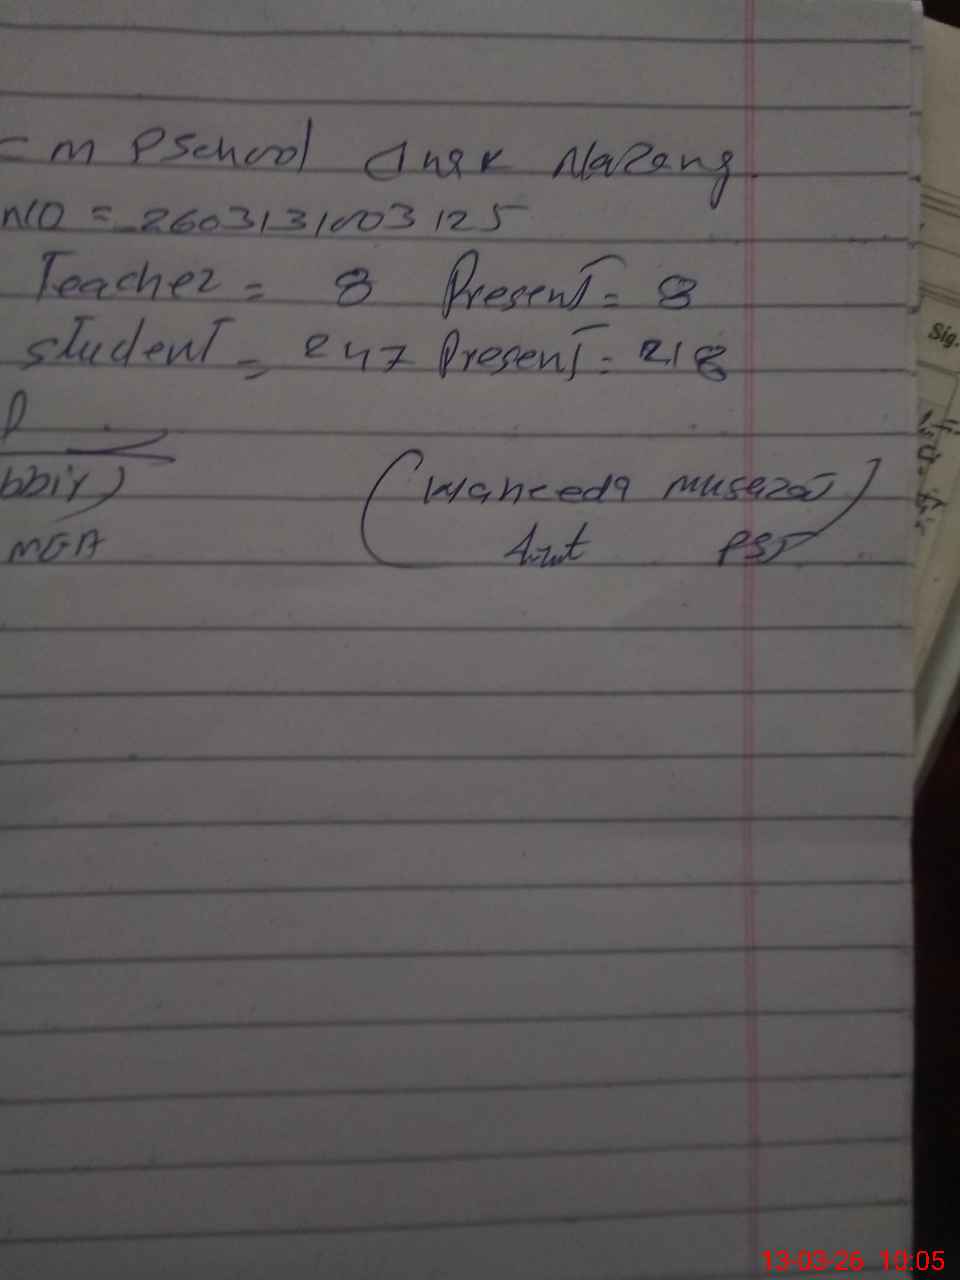 = m P School Chak Nazeng
NO = 2603131003125
Teacher = 8 Present = 8
student = 247 Present = 218
bbir)
(Waheeda musarat)
MEA
PST
Sig.
13-03-26 10:05